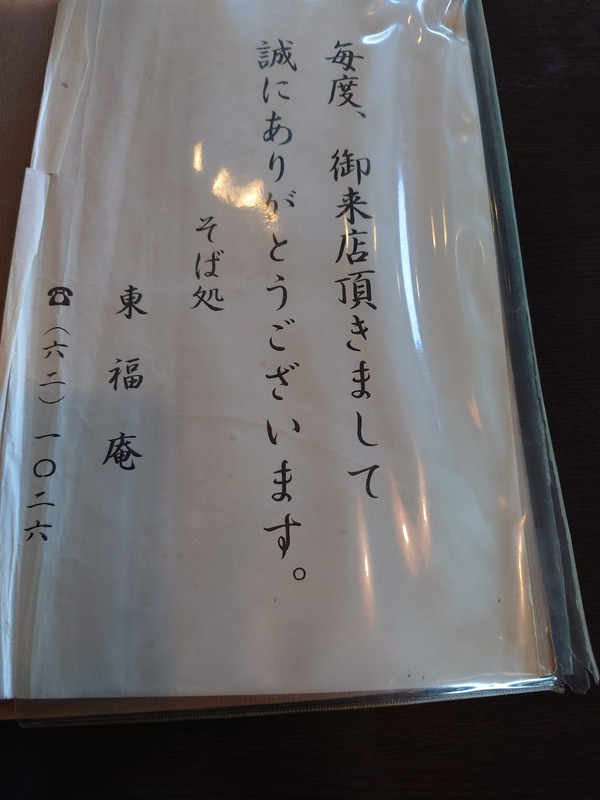 毎度、御来店頂きまして
誠にありがとうございます。
そば処
東福庵
☎(六二)一〇二六